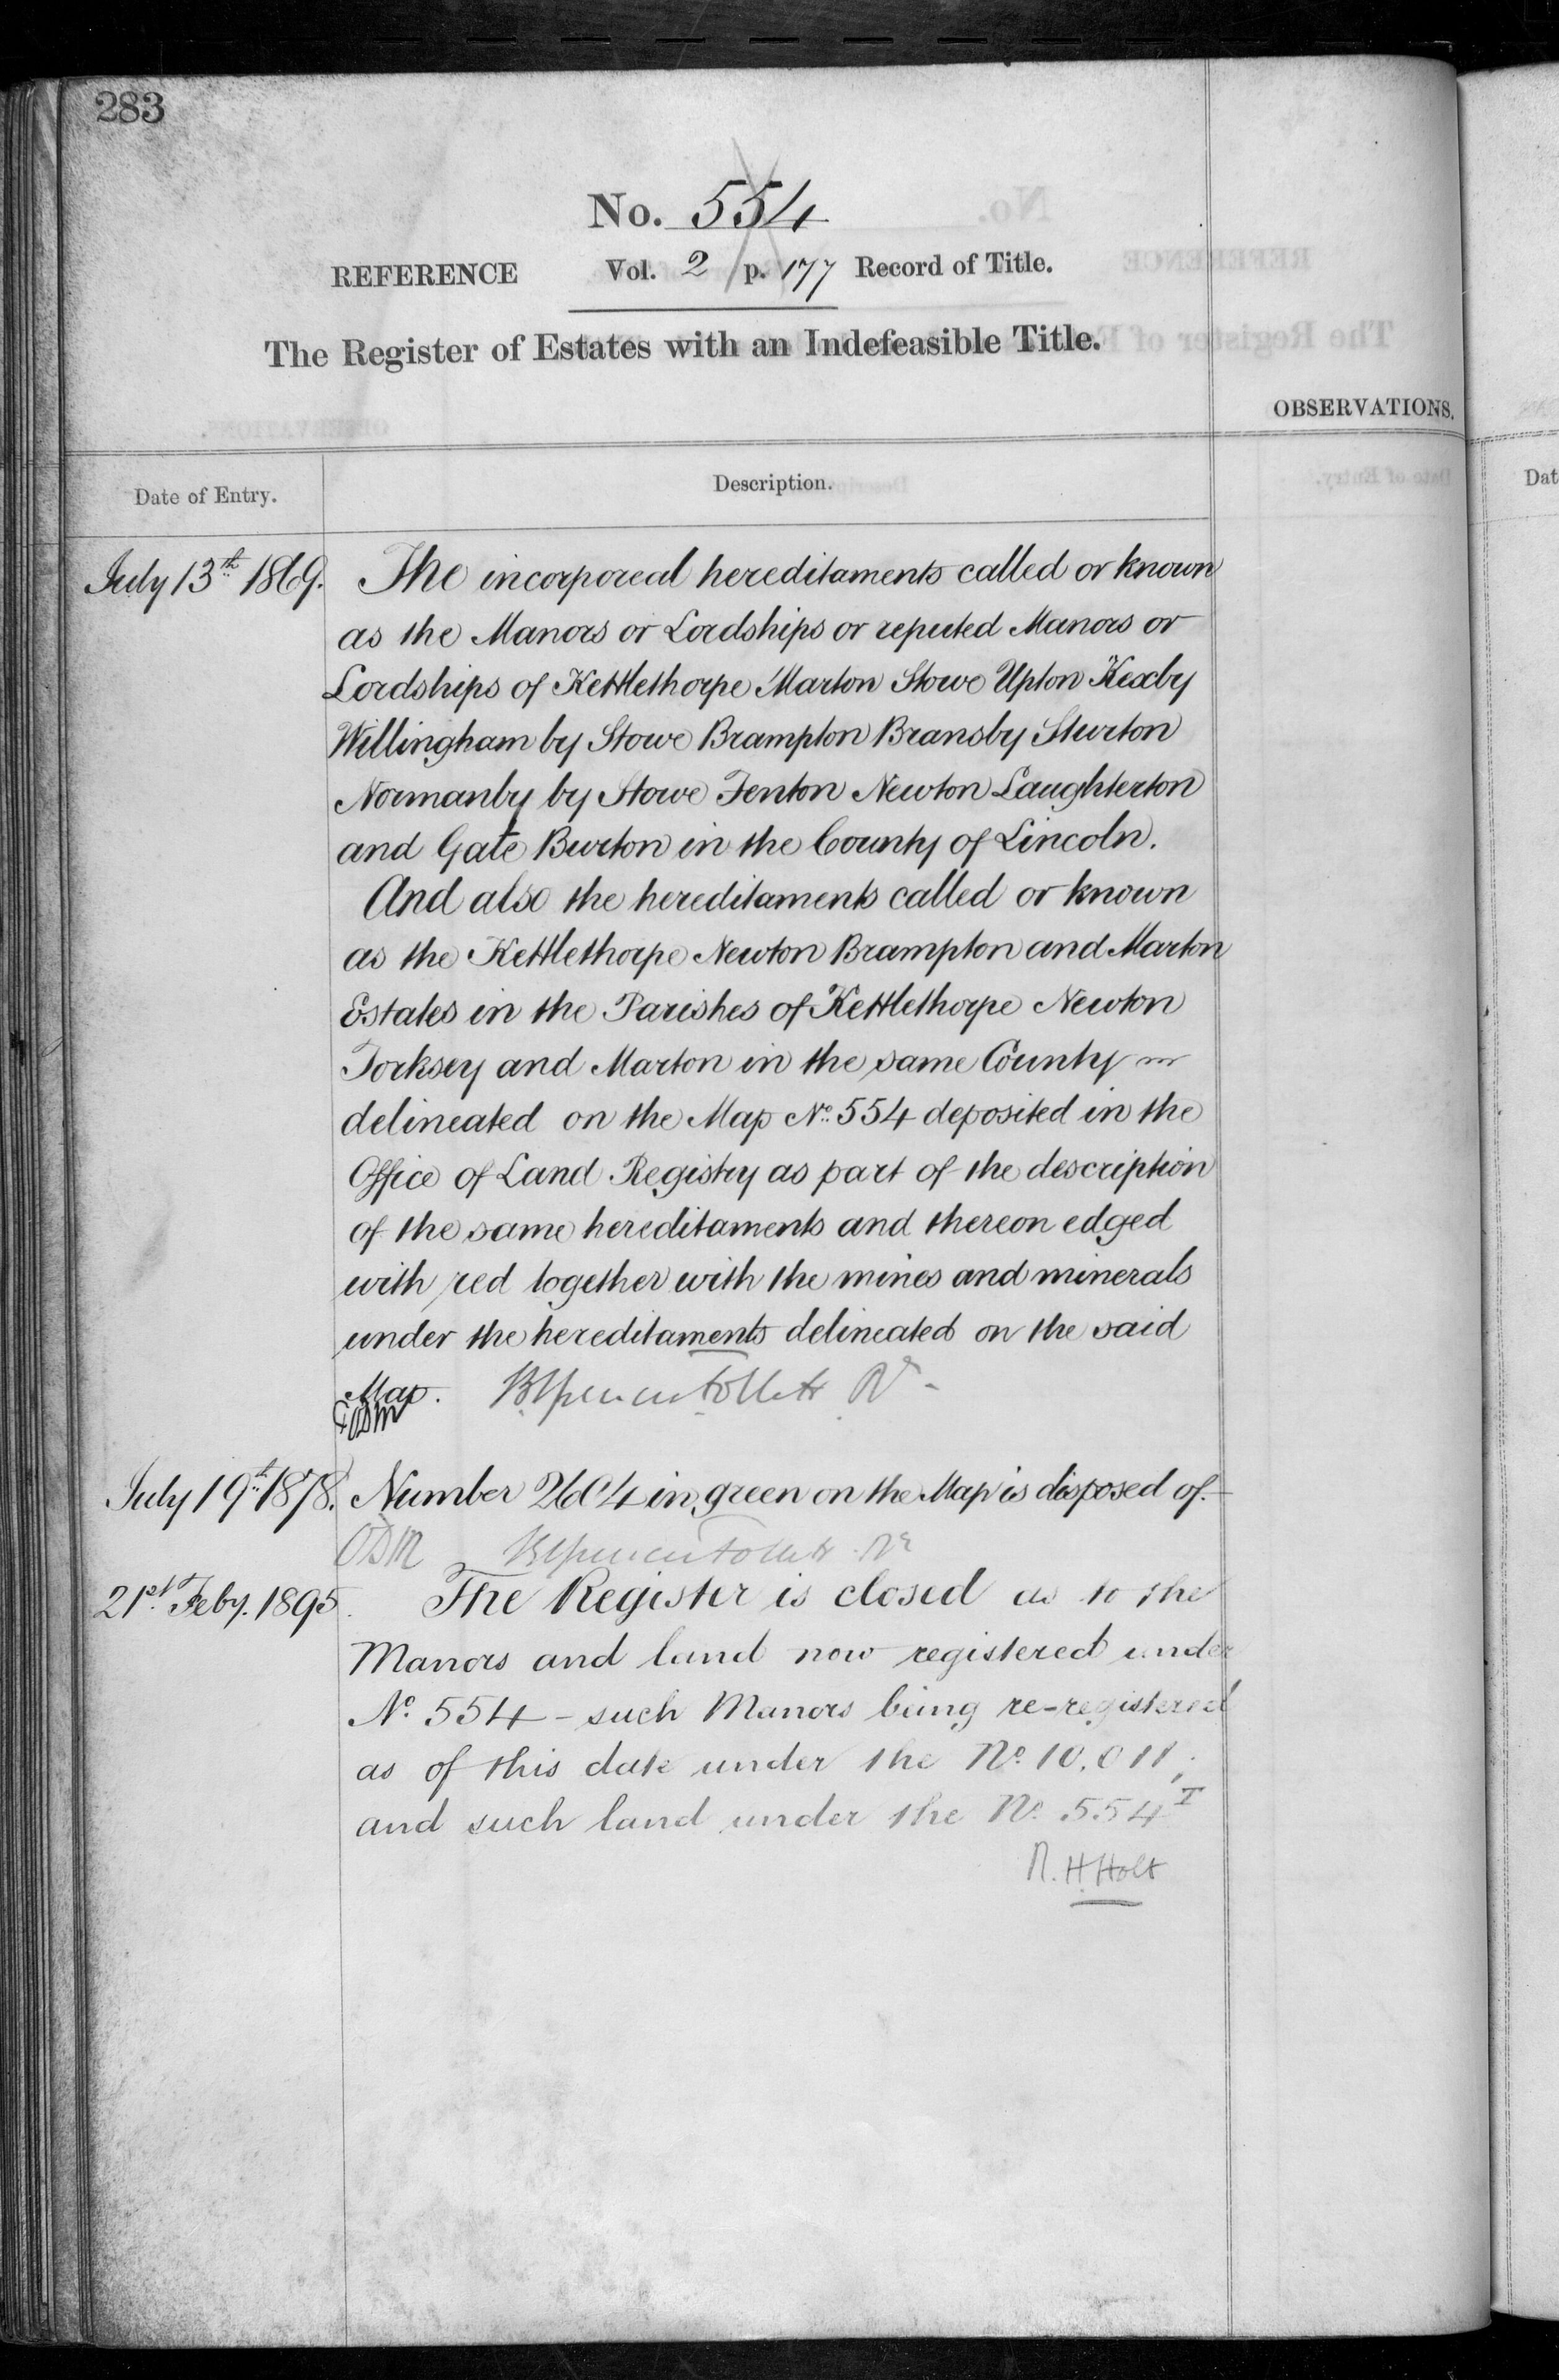 283
No. 554
REFERENCE Vol. 2 p. 177 Record of Title.
The Register of Estates with an Indefeasible Title.
OBSERVATIONS.
Date of Entry. Description.
Dat
July 13th 1869. The incorporeal hereditaments called or known
as the Manors or Lordships or reputed Manors or
Lordships of Kettlethorpe Marton Stowe Upton Kexby
Willingham by Stowe Brampton Bransby Sturton
Normanby by Stowe Fenton Newton Laughterton
and Gate Burton in the County of Lincoln.
And also the hereditaments called or known
as the Kettlethorpe Newton Brampton and Marton
Estates in the Parishes of Kettlethorpe Newton
Torksey and Marton in the same County
delineated on the Map No. 554 deposited in the
Office of Land Registry as part of the description
of the same hereditaments and thereon edged
with red together with the mines and minerals
under the hereditaments delineated on the said
Map.
July 19th 1878. Number 2604 in green on the Map is disposed of.
ODM
21st Feby. 1895. The Register is closed as to the
Manors and land now registered under
No. 554 - such Manors being re-registered
as of this date under the No. 10,011,
and such land under the No. 554 I
R. H. Holt